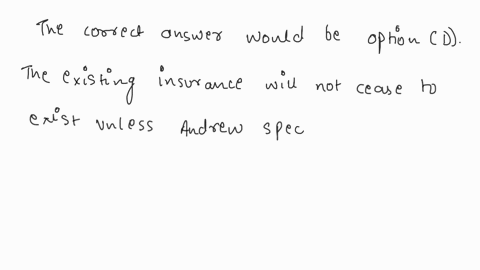 The correct answer would be option (D).
The existing insurance will not cease to
exist unless Andrew spec